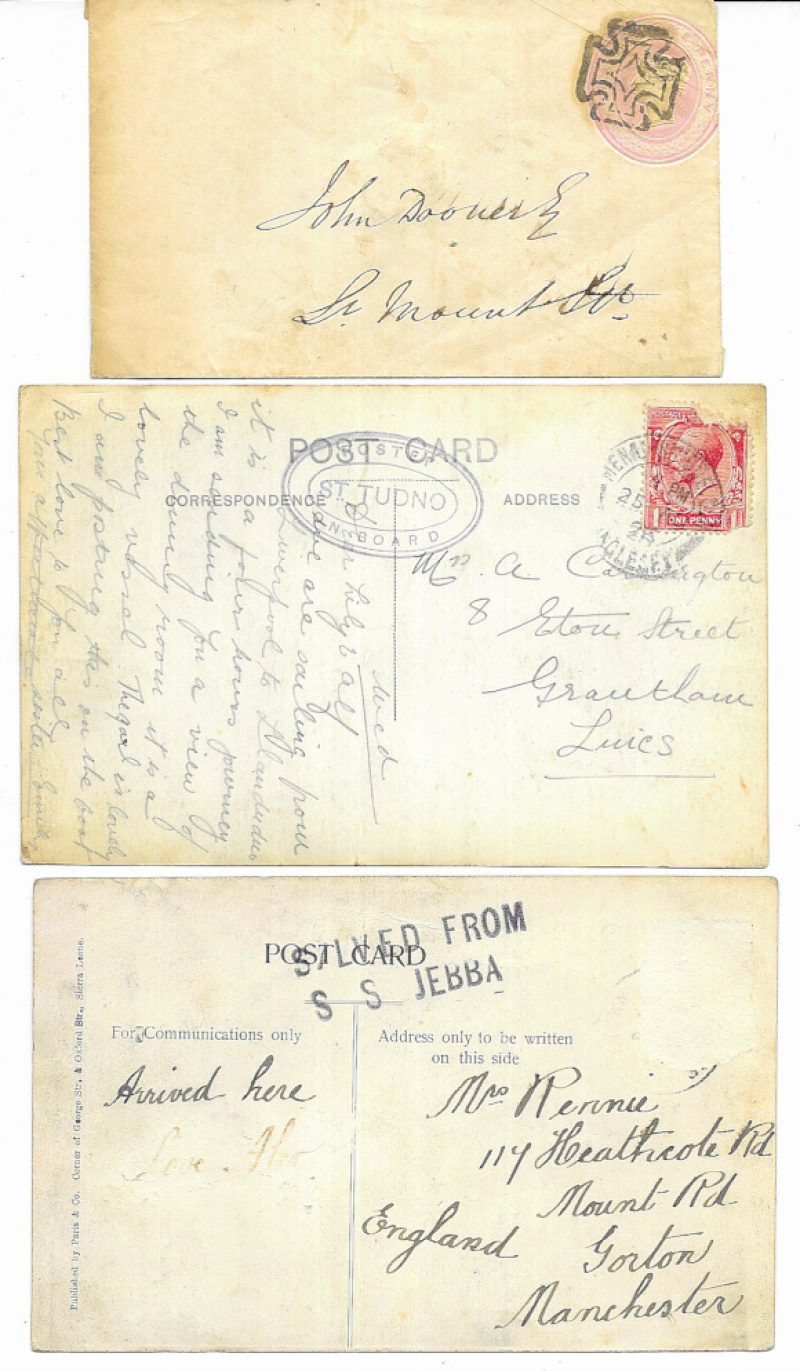 PENNY
John Dooner Esq
Lr. Mount Str
POST CARD
CORRESPONDENCE
ADDRESS
POSTED
ST TUDNO
ON BOARD
POSTAGE
ONE PENNY
MENAI BRIDGE
PM
25
ANGLESEY
Mrs A
8 Eton Street
Grantham
Lincs
Wed
Dear Lily & Alf
We are sailing from
Liverpool to Llandudno
it is a four hours journey
I am sending you a view of
the dining room it is a
lovely vessel. The is lovely
I am posting this on the boat
Best love to you all
Your affectionate sister
POST CARD
SALVED FROM
S S JEBBA
For Communications only
Address only to be written
on this side
Arrived here
Love
Mrs Rennie
117 Heathcote Rd
Mount Rd
Gorton
Manchester
England
Published by Paris & Co. Corner of George Str. & Oxford Str., Sierra Leone.